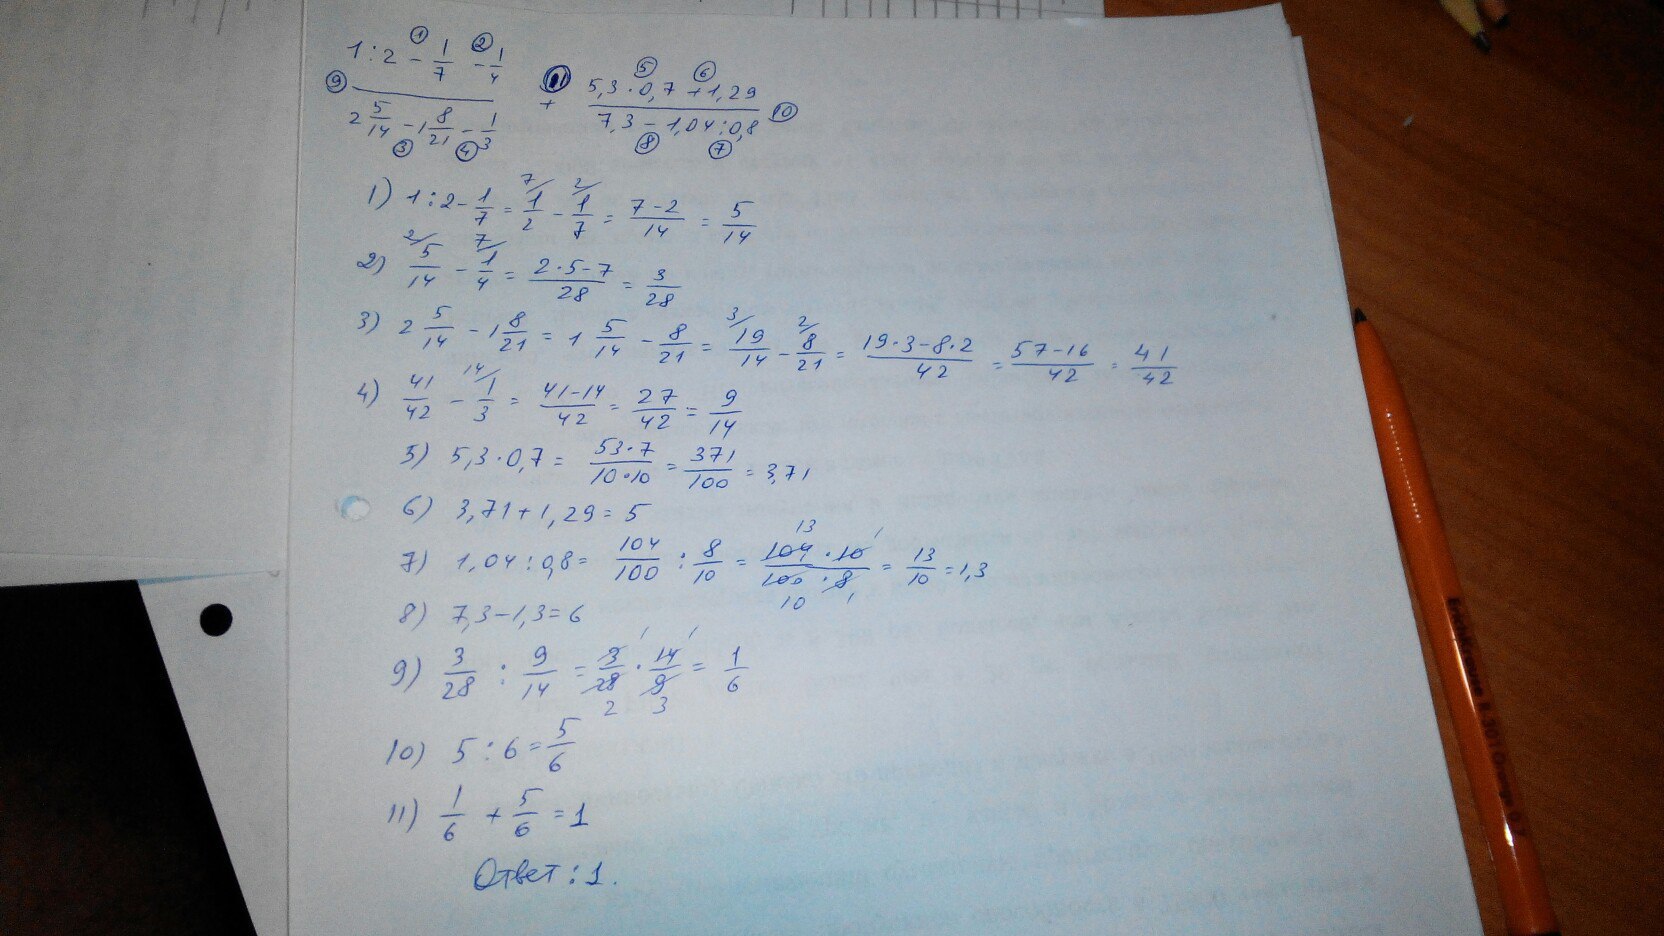 ① ②
1 : 2 − 1/7 − 1/4
⑨ ⑪ ⑤ ⑥
+ 5,3 · 0,7 + 1,29
2 5/14 − 1 8/21 − 1/3
7,3 − 1,04 : 0,8 ⑩
③ ④ ⑧ ⑦
1) 1 : 2 − 1/7 = 7/ 1/2 − 2/ 1/7 = (7 − 2)/14 = 5/14
2) 2/ 5/14 − 7/ 1/4 = (2 · 5 − 7)/28 = 3/28
3) 2 5/14 − 1 8/21 = 1 5/14 − 8/21 = 3/ 19/14 − 2/ 8/21 = (19 · 3 − 8 · 2)/42 = (57 − 16)/42 = 41/42
4) 41/42 − 14/ 1/3 = (41 − 14)/42 = 27/42 = 9/14
5) 5,3 · 0,7 = (53 · 7)/(10 · 10) = 371/100 = 3,71
6) 3,71 + 1,29 = 5
7) 1,04 : 0,8 = 104/100 : 8/10 = 13 1 (104 · 10)/(100 · 8) 10 1 = 13/10 = 1,3
8) 7,3 − 1,3 = 6
9) 3/28 : 9/14 = 1 1 3/28 · 14/9 2 3 = 1/6
10) 5 : 6 = 5/6
11) 1/6 + 5/6 = 1
Ответ : 1.